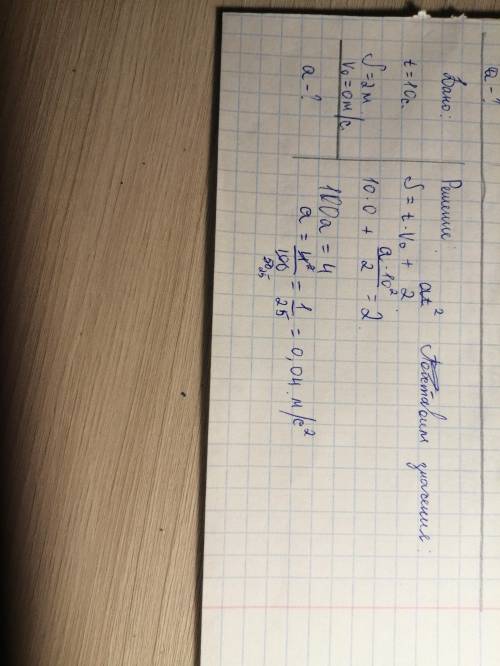 a - ?
Дано:
t = 10 с.
S = 2 м
V₀ = 0 м/с.
a - ?
Решение:
S = t · V₀ + at²/2. Подставим значения:
10 · 0 + a · 10²/2 = 2.
100a = 4
a = 4/100 = 1/25 = 0,04 м/с²